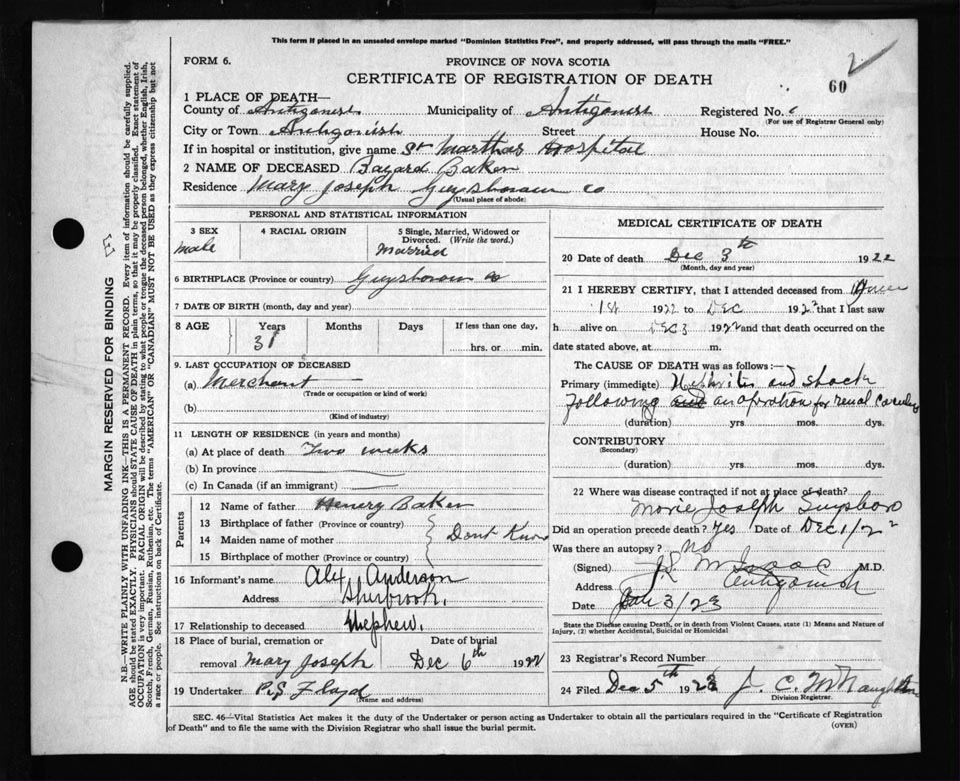 This form if placed in an unsealed envelope marked "Dominion Statistics Free", and properly addressed, will pass through the mails "FREE."
2
FORM 6.
PROVINCE OF NOVA SCOTIA
CERTIFICATE OF REGISTRATION OF DEATH
60
1 PLACE OF DEATH—
County of Antigonish Municipality of Antigonish Registered No.
(For use of Registrar General only)
City or Town Antigonish Street House No.
If in hospital or institution, give name St Marthas Hospital
2 NAME OF DECEASED Bayard Baker
Residence Mary Joseph Guysboro Co
(Usual place of abode)
PERSONAL AND STATISTICAL INFORMATION
3 SEX 4 RACIAL ORIGIN 5 Single, Married, Widowed or Divorced. (Write the word.)
male Married
6 BIRTHPLACE (Province or country) Guysboro Co
7 DATE OF BIRTH (month, day and year)
8 AGE Years Months Days If less than one day,
31 hrs. or min.
9. LAST OCCUPATION OF DECEASED
(a) Merchant
(Trade or occupation or kind of work)
(b)
(Kind of industry)
11 LENGTH OF RESIDENCE (in years and months)
(a) At place of death Two weeks
(b) In province
(c) In Canada (if an immigrant)
Parents
12 Name of father Henery Baker
13 Birthplace of father (Province or country)
14 Maiden name of mother Dont Know
15 Birthplace of mother (Province or country)
16 Informant's name Alex Anderson
Address Sherbrook,
17 Relationship to deceased Nephew.
18 Place of burial, cremation or Date of burial
removal Mary Joseph Dec 6th 1922
19 Undertaker Floyd
(Name and address)
MEDICAL CERTIFICATE OF DEATH
20 Date of death Dec 3th 1922
(Month, day and year)
21 I HEREBY CERTIFY, that I attended deceased from
1st 1922 to Dec 192 that I last saw
h alive on Dec 3 1922 and that death occurred on the
date stated above, at m.
The CAUSE OF DEATH was as follows:—
Primary (immediate) Nephritis and shock
following an operation for renal
(duration) yrs. mos. dys.
CONTRIBUTORY
(Secondary)
(duration) yrs. mos. dys.
22 Where was disease contracted if not at place of death?
Marie Joseph Guysboro
Did an operation precede death? Yes Date of Dec 1/22
Was there an autopsy? no
(Signed) McIsaac M.D.
Address Antigonish
Date 3/23
State the Disease causing Death, or in death from Violent Causes, state (1) Means and Nature of
Injury, (2) whether Accidental, Suicidal or Homicidal
23 Registrar's Record Number
24 Filed Dec 5th 192 J. C. McNaughton
Division Registrar.
SEC. 46—Vital Statistics Act makes it the duty of the Undertaker or person acting as Undertaker to obtain all the particulars required in the "Certificate of Registration
of Death" and to file the same with the Division Registrar who shall issue the burial permit.
(OVER)
MARGIN RESERVED FOR BINDING
N.B.—WRITE PLAINLY WITH UNFADING INK—THIS IS A PERMANENT RECORD. Every item of information should be carefully supplied.
AGE should be stated EXACTLY. PHYSICIANS should STATE CAUSE OF DEATH in plain terms, so that it may be properly classified. Exact statement of
OCCUPATION is very important. RACIAL ORIGIN will be described by stating to what people or tongue the deceased person belonged, whether English, Irish,
Scotch, French, German, Russian, Ruthenian, etc. The terms "AMERICAN" or "CANADIAN" MUST NOT BE USED as they express citizenship but not
a race or people. See instructions on back of Certificate.